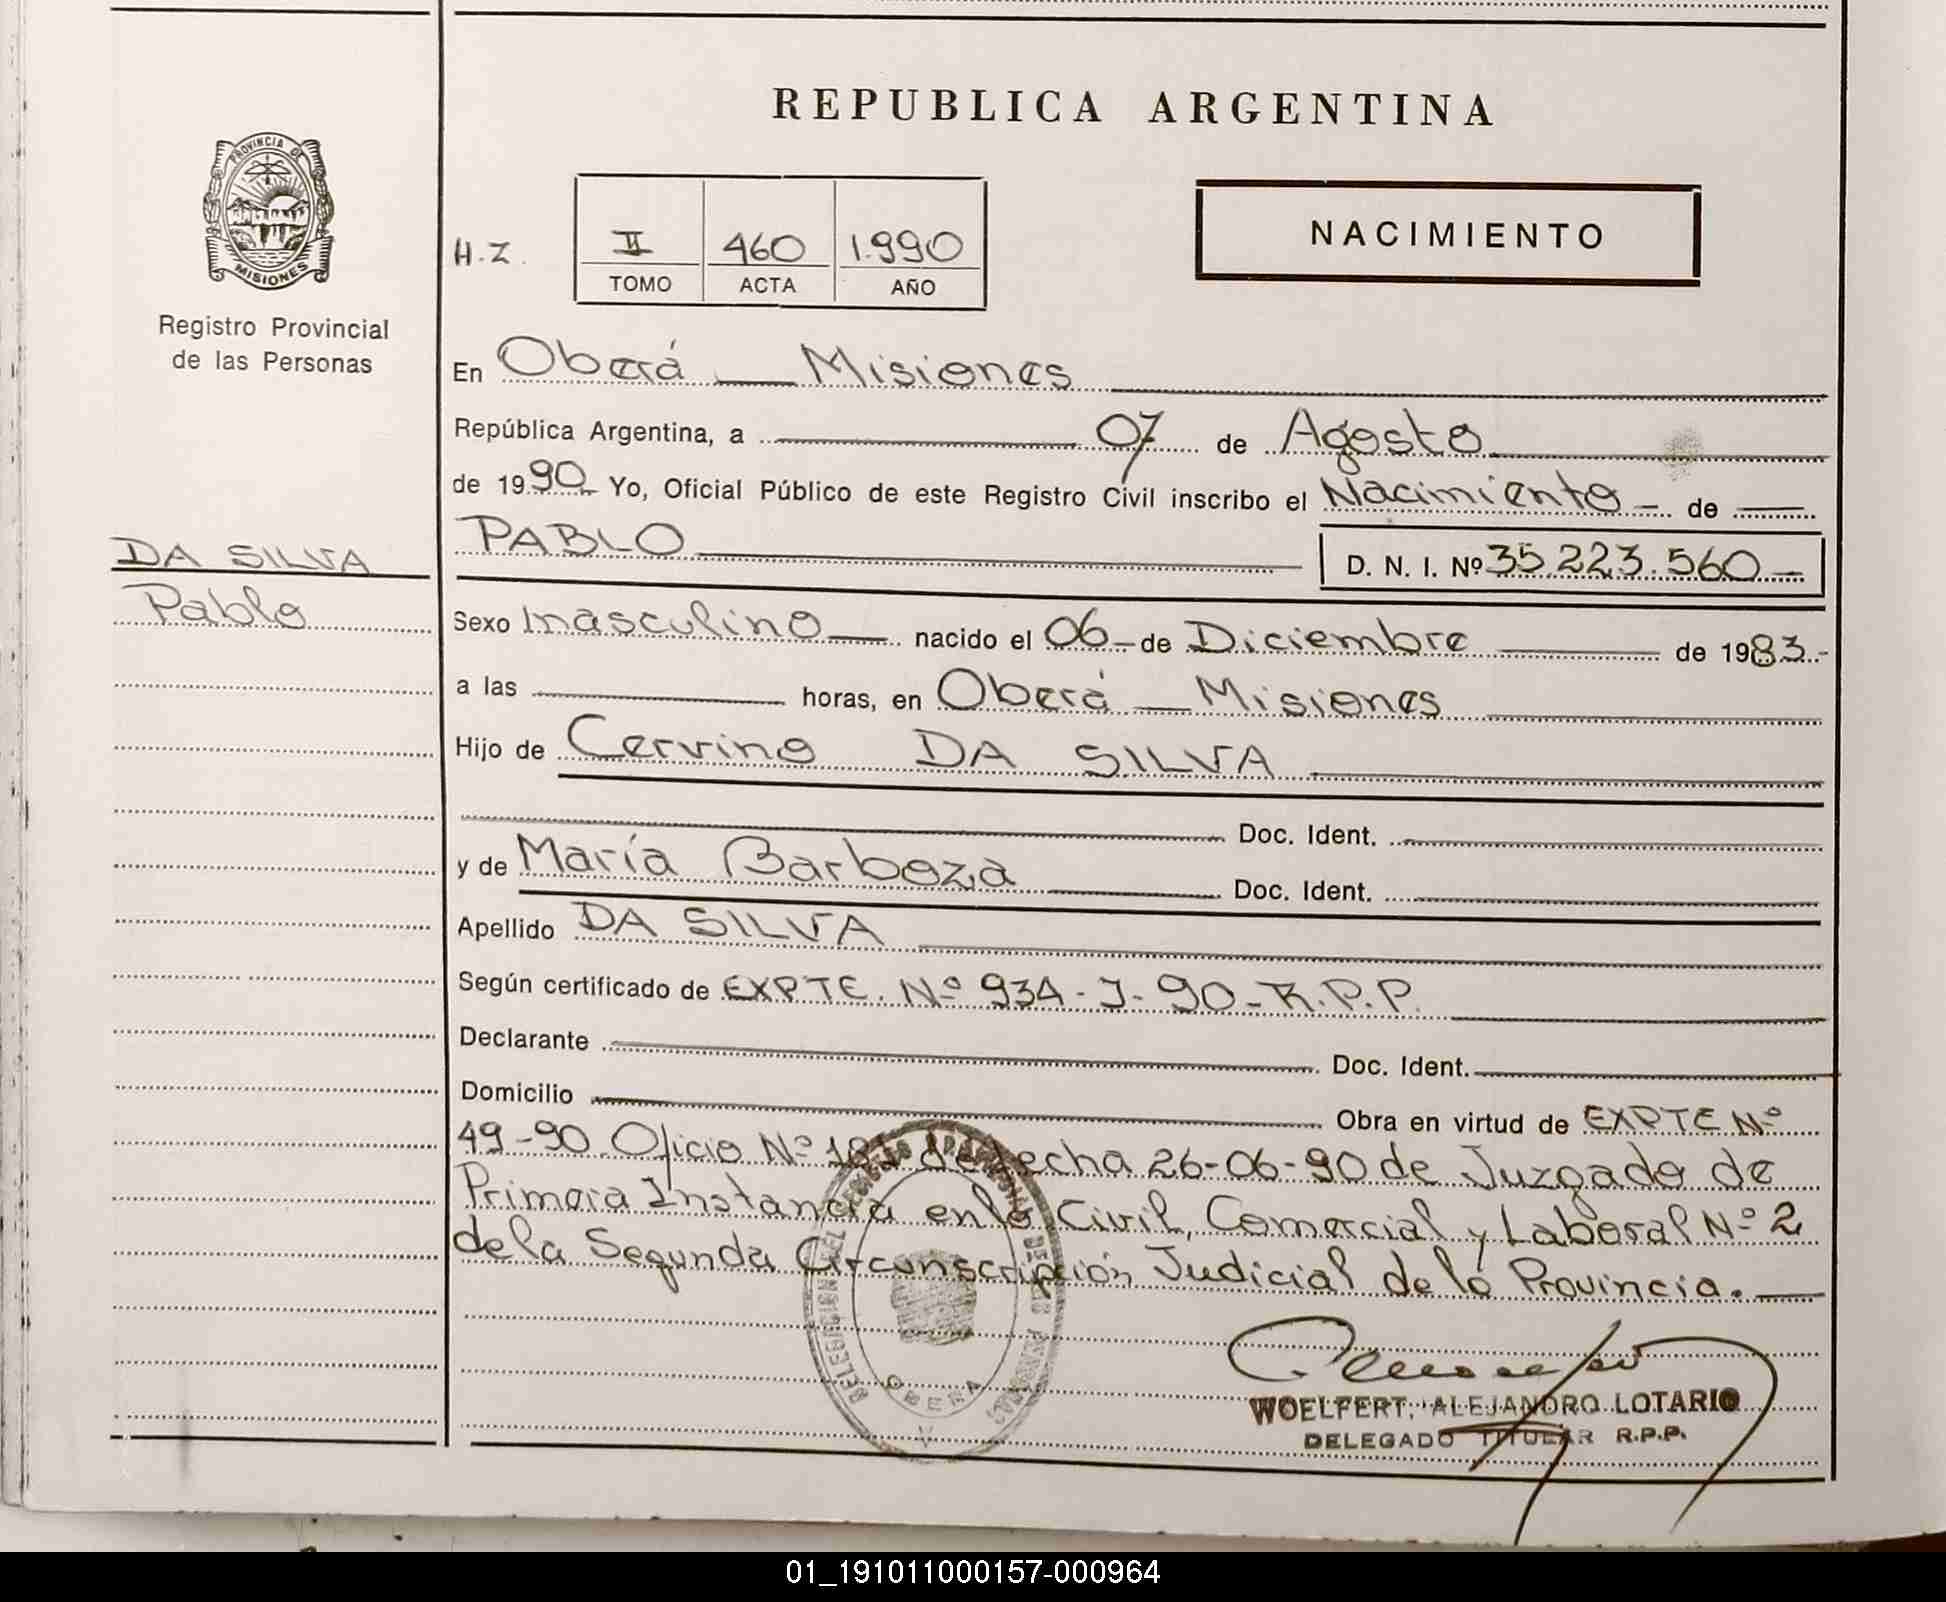 REPUBLICA ARGENTINA
PROVINCIA DE
MISIONES
Registro Provincial
de las Personas
H.Z.
II 460 1.990
TOMO ACTA AÑO
NACIMIENTO
En Oberá — Misiones
República Argentina, a 07 de Agosto
de 1990 Yo, Oficial Público de este Registro Civil inscribo el Nacimiento - de
PABLO D. N. I. Nº 35.223.560 -
DA SILVA
Pablo
Sexo masculino nacido el 06 - de Diciembre de 1983.-
a las horas, en Oberá — Misiones
Hijo de Cervino DA SILVA
Doc. Ident.
y de María Barboza Doc. Ident.
Apellido DA SILVA
Según certificado de EXPTE. Nº 934-J-90-R.P.P.
Declarante Doc. Ident.
Domicilio Obra en virtud de EXPTE Nº
49-90 Oficio Nº de fecha 26-06-90 de Juzgado de
Primera Instancia en lo Civil, Comercial y Laboral Nº 2
de la Segunda Circunscripción Judicial de la Provincia.
OBERA
WOELFERT, ALEJANDRO LOTARIO
DELEGADO TITULAR R.P.P.
01_191011000157-000964